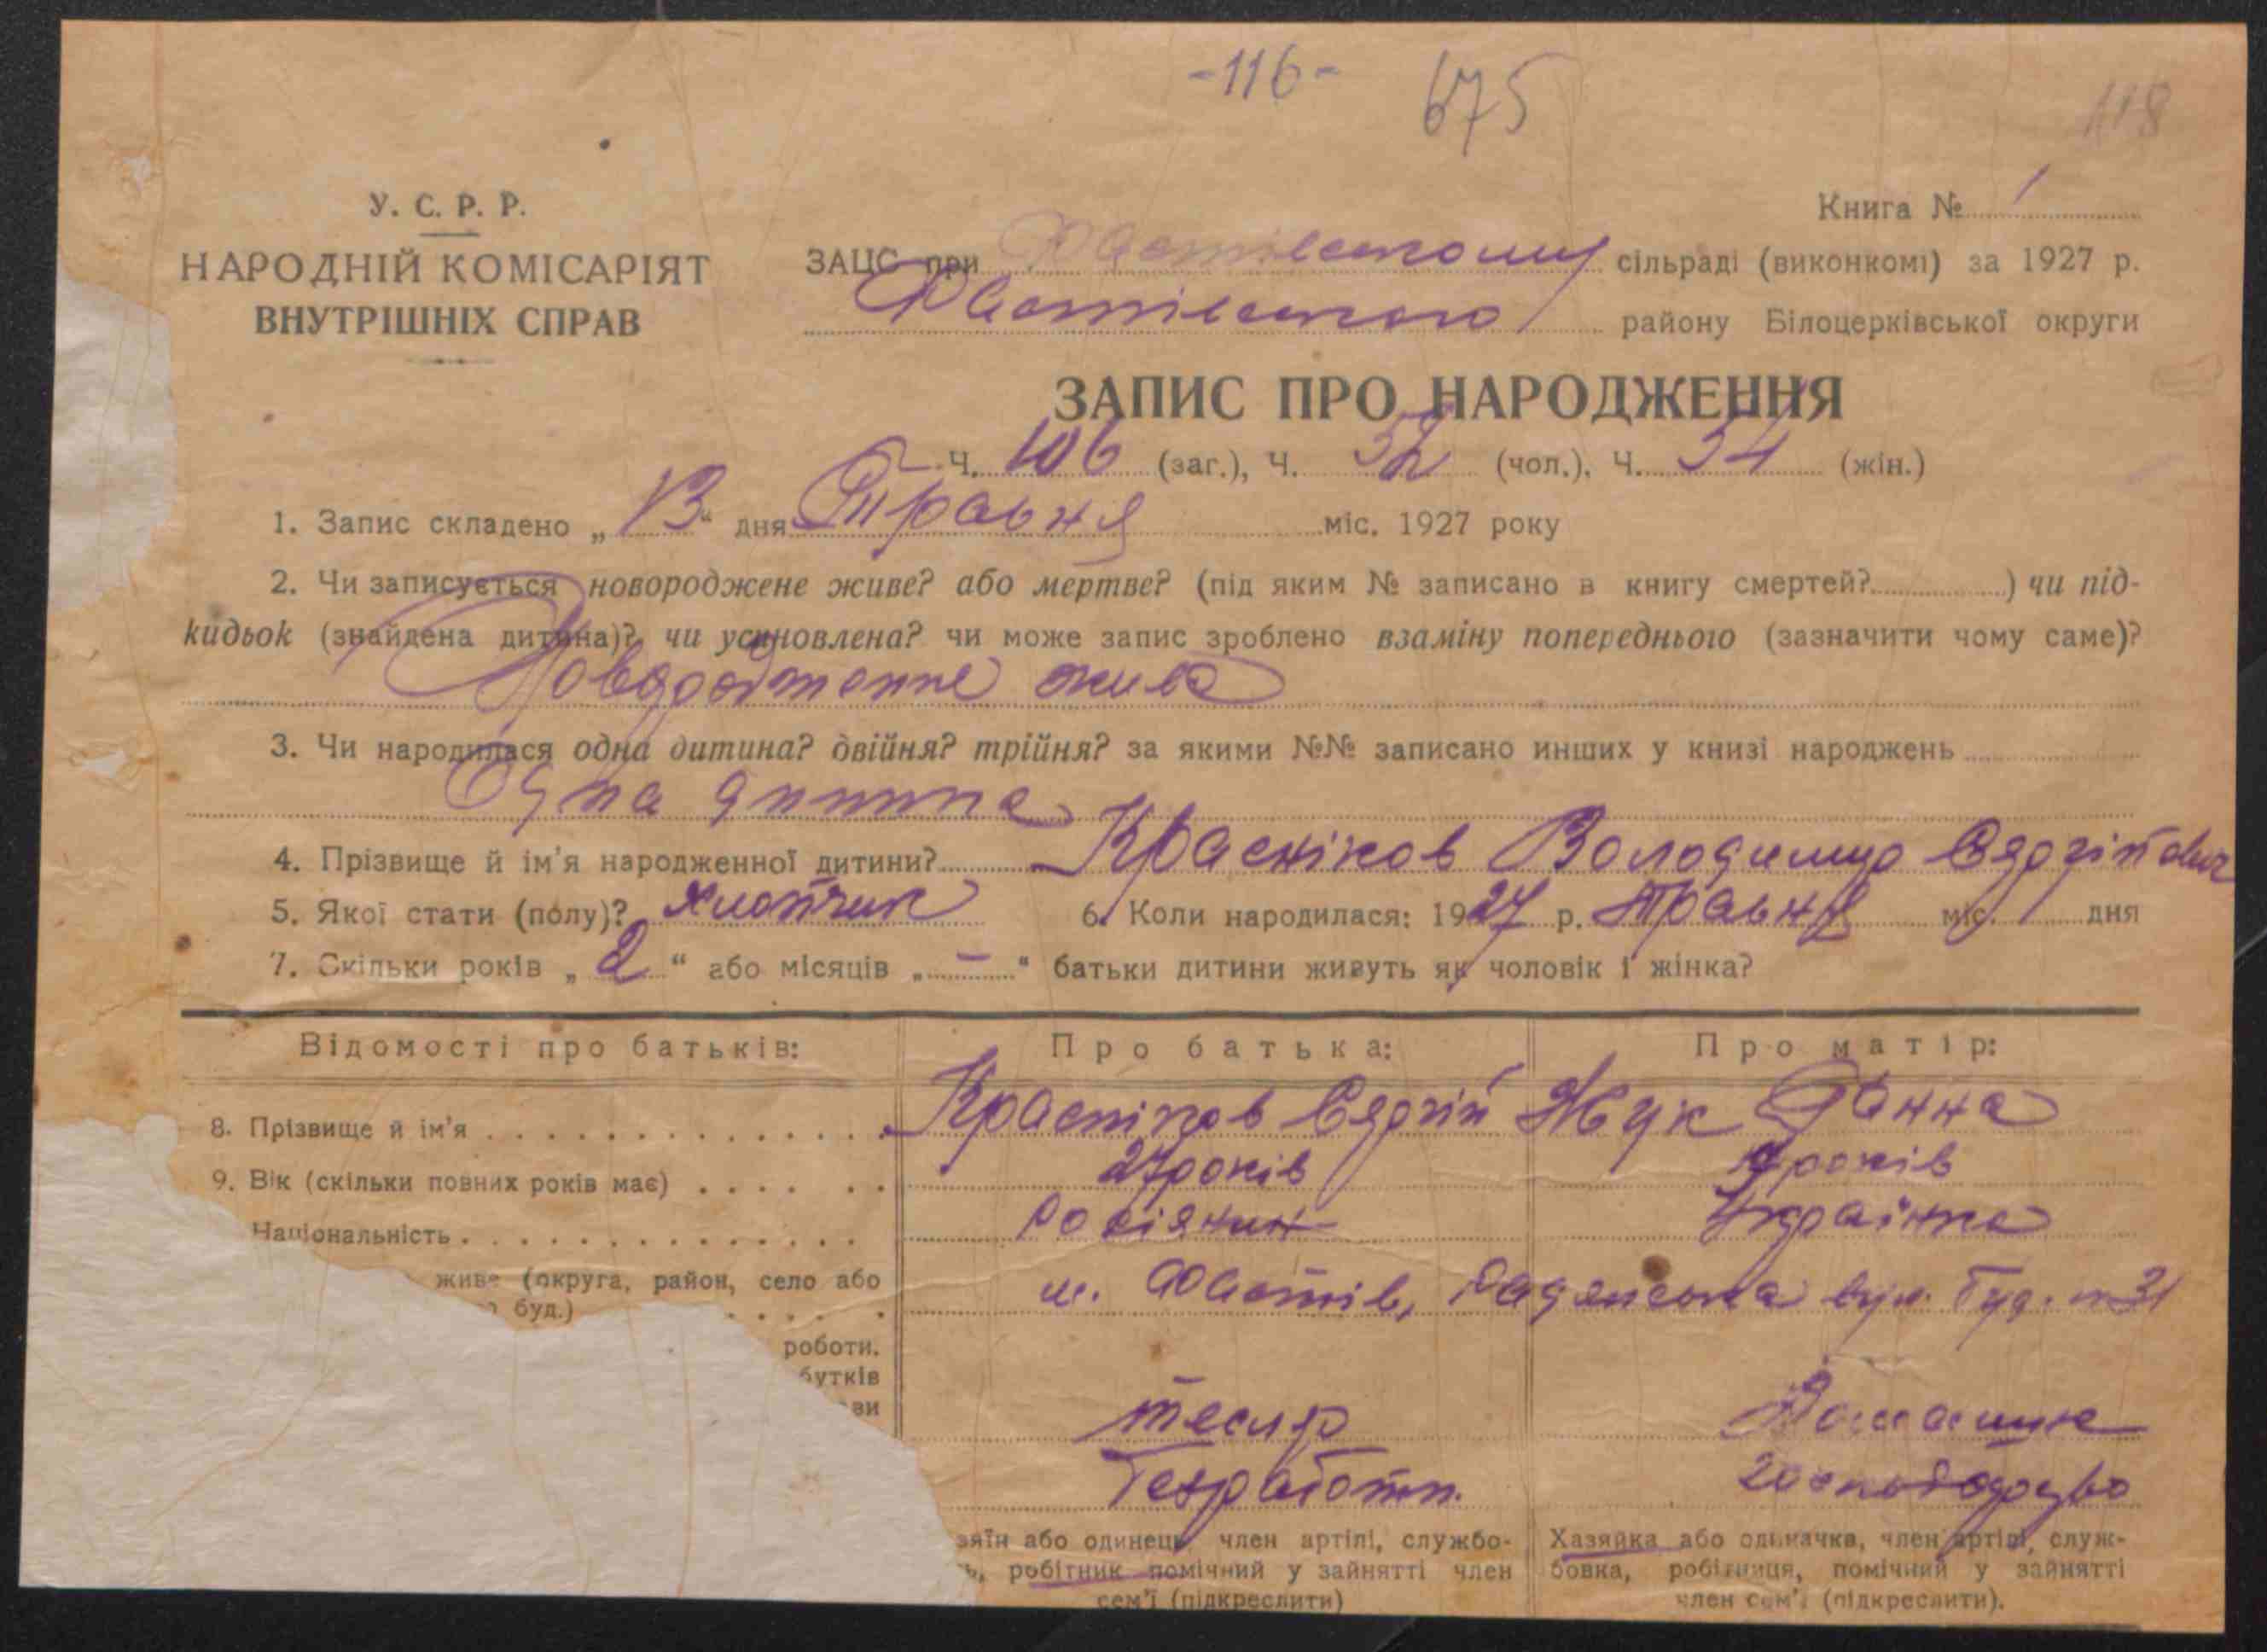 -116- 675
118
У. С. Р. Р.
НАРОДНІЙ КОМІСАРІЯТ
ВНУТРІШНІХ СПРАВ
Книга № 1
ЗАЦС при Фастівському сільраді (виконкомі) за 1927 р.
Фастівського району Білоцерківської округи
ЗАПИС ПРО НАРОДЖЕННЯ
Ч. 106 (заг.), Ч. 52 (чол.), Ч. 54 (жін.)
1. Запис складено „13“ дня Травня міс. 1927 року
2. Чи записується новороджене живе? або мертве? (під яким № записано в книгу смертей? ) чи під-
кидьок (знайдена дитина)? чи усиновлена? чи може запис зроблено взаміну попереднього (зазначити чому саме)?
живе
3. Чи народилася одна дитина? двійня? трійня? за якими №№ записано инших у книзі народжень
Одна дитина
4. Прізвище й ім'я народженної дитини? Красніков Володимир
5. Якої стати (полу)? хлопчик 6. Коли народилася: 1927 р. Травня міс. 1 дня
7. Скільки років „2“ або місяців „—“ батьки дитини живуть як чоловік і жінка?
Відомості про батьків: Про батька: Про матір:
8. Прізвище й ім'я Красніков Сергій Жук Ганна
9. Вік (скільки повних років має) 27 років років
Національність Росіянин Українка
живе (округа, район, село або
буд.) м. Фастів, Радянська вул. буд. № 31
роботи.
бутків
ви
тесляр Домашнє
безработн. господарство
зяїн або одинець, член артілі, службо- Хазяйка або одиначка, член артілі, служ-
ь, робітник помічний у зайнятті член бовка, робітниця, помічний у зайнятті
сем'ї (підкреслити) член сем'ї (підкреслити).